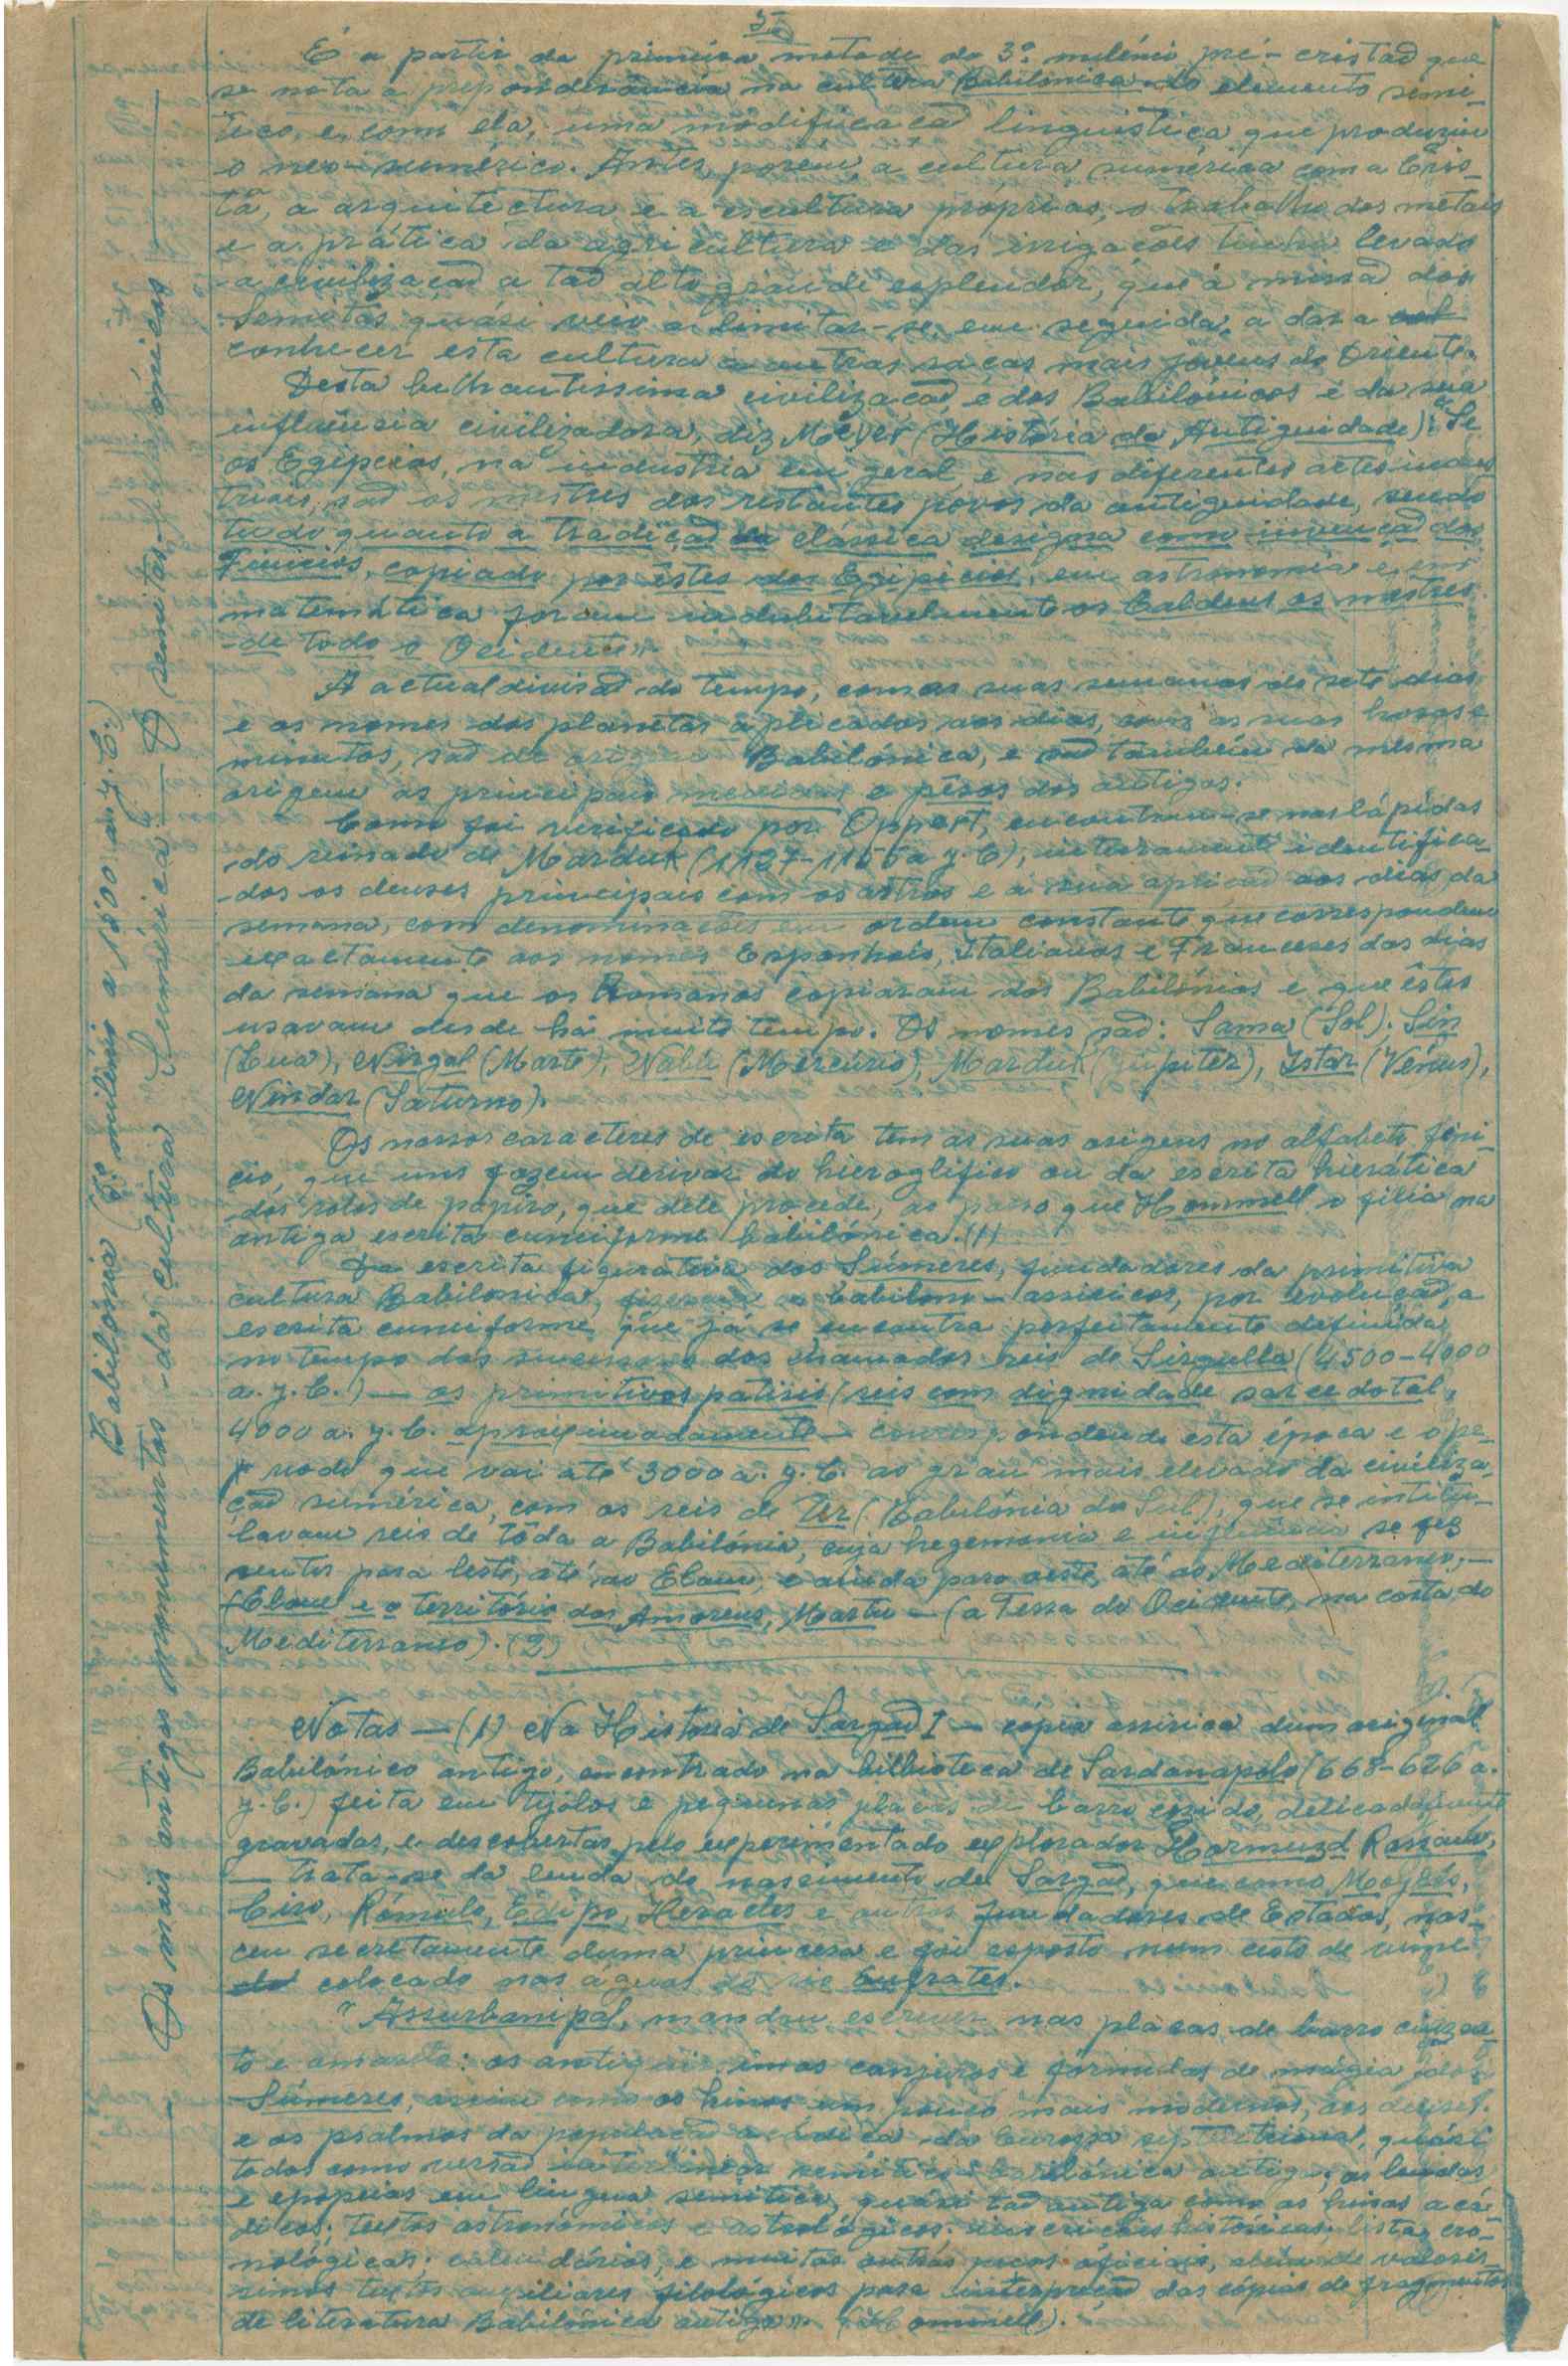 5
É a partir da primeira metade do 3.º milénio pré-cristaõ que
se nota a preponderância na cultura Babilónica do elemento semi-
tico, e, com ela, uma modificacaõ linguistica que produziu
o neo-sumérico. Antes, porem, a cultura sumérica com a Cris-
tã, a arquitectura e a escultura próprias, o trabalho dos metais
e a prática da agricultura e das irrigações tinha levado
a civilizacaõ a taõ alto grau de esplendor, que a dos
Semitas quási veio a limitar-se, em seguida, a dar a
conhecer esta cultura a outras raças mais jovens do Oriente.
Desta brilhantissima civilizacaõ, é dos Babilónicos e da sua
influência civilizadora, diz Meyer (História da Antiguidade): "Se
os Egipcios, na industria em geral, e nas diferentes artes indus-
triais, saõ os mestres dos restantes povos da antiguidade, sendo
tudo quanto a tradiçaõ clássica designa como invençaõ dos
Finicios, copiado por êstes dos Egipicios, em astronomia e em
matemática foram indubitavelmente os Caldeus os mestres
de todo o Ocidente".
A actual divisaõ do tempo, com as suas semanas de sete dias
e os nomes dos planetas aplicados aos dias, com as suas horas e
minutos, saõ de origem Babilónica, e saõ também da mesma
origem as principais medidas e pêsos dos antigos.
Como foi verificado por Oppert, encontram-se nas lápidas
do reinado de Marduk (1127-1105 a. J. C), inteiramente identifica-
dos os deuses principais com os astros e a sua aos dias da
semana, com denominações em ordem constante que correspondem
exactamente aos nomes Espanhois, Italianos e Franceses dos dias
da semana que os Romanos copiaram dos Babilónios e que êstes
usavam desde há muito tempo. Os nomes saõ: Sama (Sol), Sin
(Lua), Nirgal (Marte), Nabú (Mercúrio), Marduk (Júpiter), Istar (Vénus),
Nindar (Saturno).
Os nossos caracteres de escrita tem as suas origens no alfabeto fini-
cio, que uns fazem derivar do hieroglifico ou da escrita hierática
dos rolos de papiro, que dele procede, ao passo que Hommell o filia na
antiga escrita cuneiforme babilónica. (1)
Da escrita figurativa dos Súmeres, fundadores da primitiva
cultura Babilonica, fizeram os babilono-assiricos, por evoluçaõ, a
escrita cuneiforme, que já se encontra perfeitamente definida
no tempo dos sucessores dos chamados reis de Sirgulla (4500-4000
a. J. C.) — os primitivos patisis (reis com dignidade sacerdotal,
4000 a. J. C. aproximadamente — correspondendo esta época e o pe-
riodo que vai até 3000 a. J. C. ao grau mais elevado da civiliza-
çaõ sumérica, com os reis de Ur (Babilónia do Sul), que se intitu-
lavam reis de tôda a Babilónia, cuja hegemonia e influência se fez
sentir para leste, até ao Elam, e ainda para oeste, até ao Mediterraneo, —
(Elam e o território dos Amoreus, Martu — (a Terra do Ocidente, na costa do
Mediterraneo). (2)
Notas — (1) Na Historia de Sargaõ I — copia assirica dum original
Babilónico antigo, encontrado na bilbioteca de Sardanapolo (668-626 a.
J. C.) feita em tijolos e pequenas placas de barro cosido, delicadamente
gravadas, e descobertas pelo experimentado explorador Hormuzd Rassam,
— trata-se da lenda do nascimento de Sargaõ, que como Moysés,
Ciro, Rómulo, Édipo, Heracles e outros fundadores de Estados, nas-
ceu secretamente duma princesa e foi exposto num cesto de vime
colocado nas águas do rio Eufrates.
"Assurbanipal, mandou escrever nas placas de barro
to e amarelo: os antiquissimos conjuros e fórmulas de mágia dos
Súmeres, assim como os hinos um pouco mais modernos, aos deuses
e os psalmos da populacaõ acádica da septentrional, quási
todos como versaõ interlinear semitico-babilónica antiga; as lendas
e epopeias em lingua semitica, quási taõ antiga como os hinos acá-
dicos; textos astronómicos e astrológicos; inscricões históricas; listas cro-
nológicas; calendários, e muitas outras oficiais, além de valiosis-
simos textos auxiliares filológicos para das cópias de fragmentos
de literatura Babilónica antiga". (Hommell).
Babilónia (5.º milénio a 1800 a. J. C.)
Os mais antigos monumentos da cultura Sumérica — O semitas babilónicos